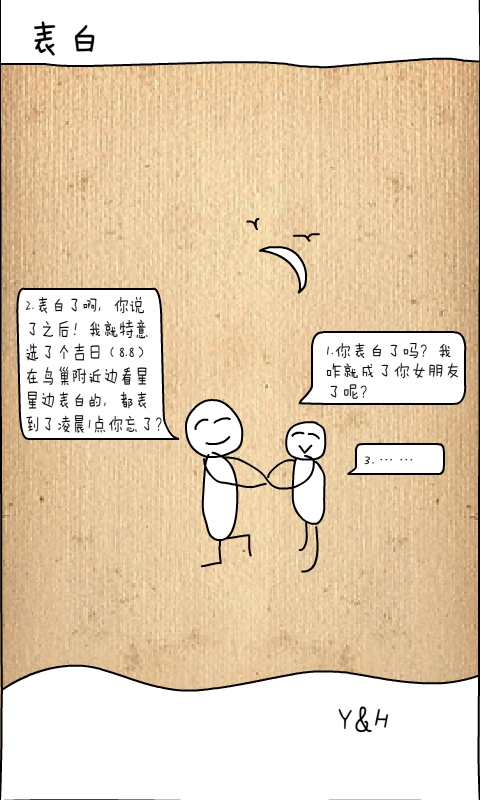 表白
1.你表白了吗？我
咋就成了你女朋友
了呢？
2.表白了啊，你说
了之后！我就特意
选了个吉日（8.8）
在鸟巢附近边看星
星边表白的，都表
到了凌晨1点你忘了？
3.… …
Y&H